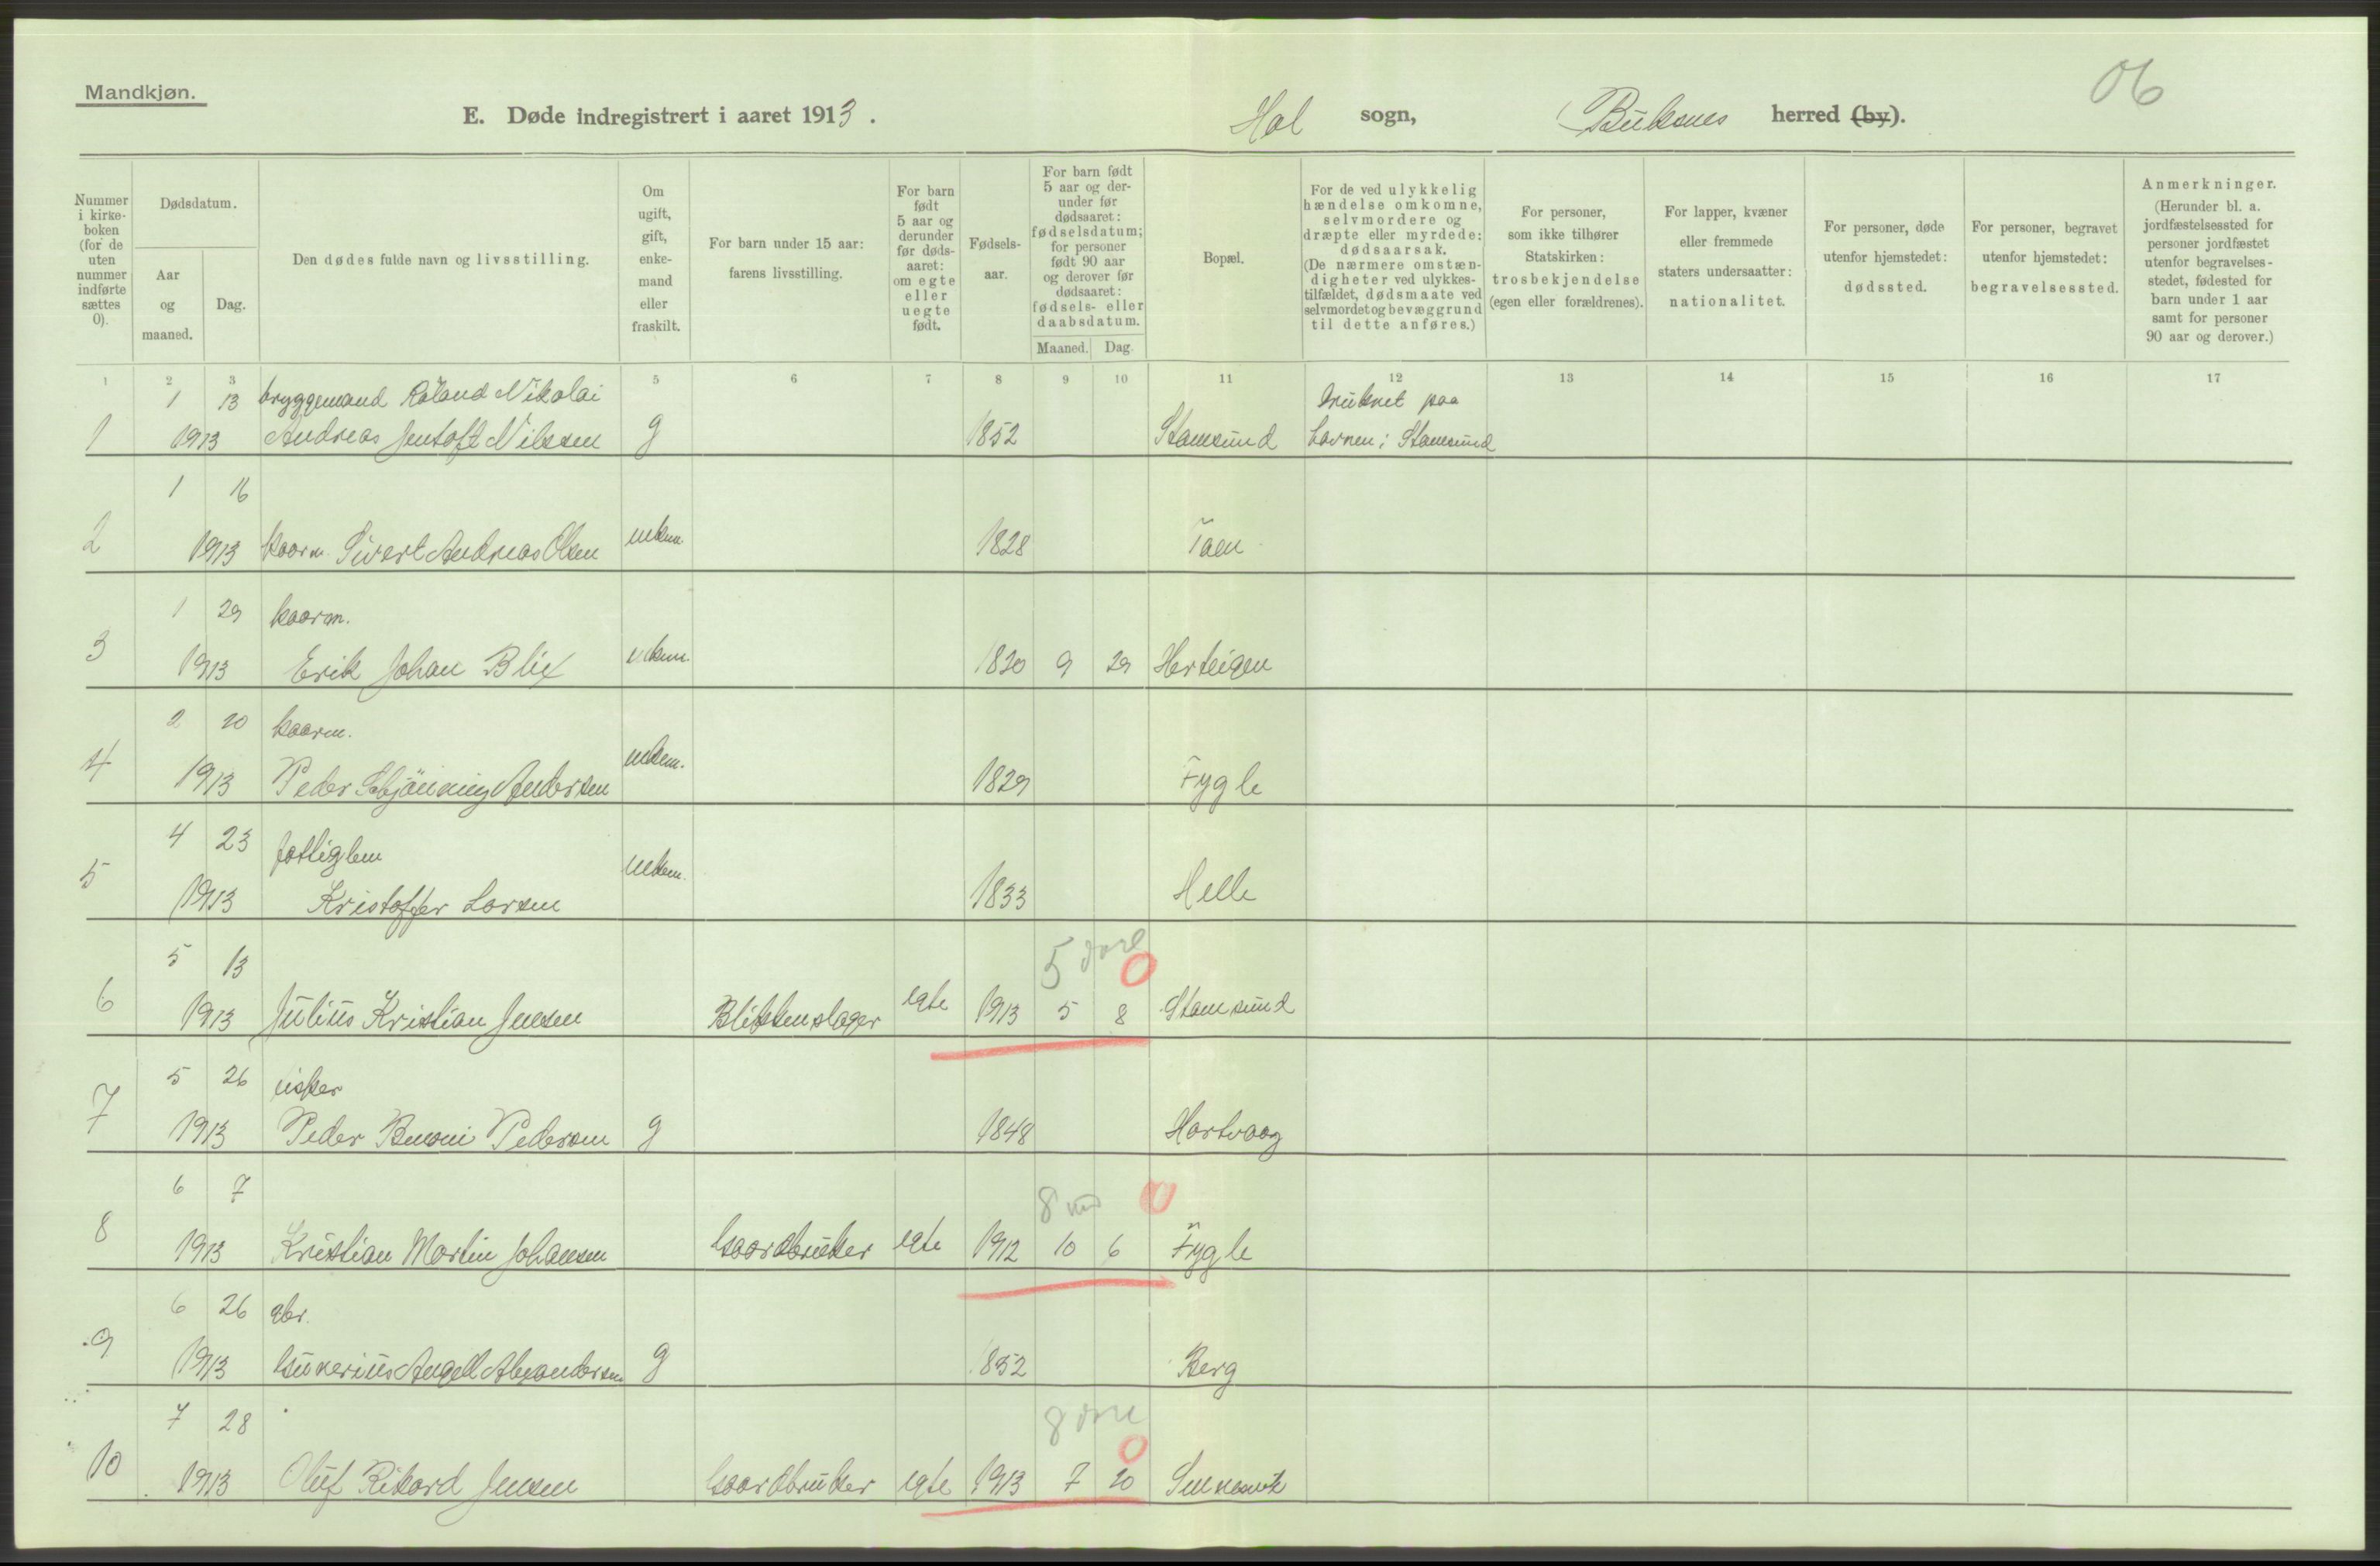 Mandkjøn.
06
E. Døde indregistrert i aaret 1913. Hol sogn, Buksnes herred (by).
Nummer i kirke- boken (for de uten nummer indførte sættes 0).
Dødsdatum.
Aar og maaned.
Dag.
Den dødes fulde navn og livsstilling.
Om ugift, gift, enke- mand eller fraskilt.
For barn under 15 aar: farens livsstilling.
For barn født 5 aar og derunder før døds- aaret: om egte eller uegte født.
Fødsels- aar.
For barn født 5 aar og der- under før dødsaaret: fødselsdatum; for personer født 90 aar og derover før dødsaaret: fødsels- eller daabsdatum.
Maaned. Dag.
Bopæl.
For de ved ulykkelig hændelse omkomne, selvmordere og dræpte eller myrdede: dødsaarsak. (De nærmere omstæn- digheter ved ulykkes- tilfældet, dødsmaate ved selvmordet og bevæggrund til dette anføres.)
For personer, som ikke tilhører Statskirken: trosbekjendelse (egen eller forældrenes).
For lapper, kvæner eller fremmede staters undersaatter: nationalitet.
For personer, døde utenfor hjemstedet: dødssted.
For personer, begravet utenfor hjemstedet: begravelsessted.
Anmerkninger. (Herunder bl. a. jordfæstelsessted for personer jordfæstet utenfor begravelses- stedet, fødested for barn under 1 aar samt for personer 90 aar og derover.)
1 2 3 5 6 7 8 9 10 11 12 13 14 15 16 17
1 13 bryggemand Roland Nikolai druknet paa
1 1913 Andreas Jentoft Nilssen g 1852 Stamsund havnen i Stamsund
1 16
2 1913 kaarm. Sivert Andreas Olsen enkem. 1828 Taen
1 29 kaarm.
3 1913 Erik Johan Blix enkem. 1820 9 29 Herteigen
2 20 kaarm.
4 1913 Peder Schjönning Andersen enkem. 1829 Fygle
4 23 fattiglem
5 1913 Kristoffer Larsen enkem. 1833 Helle
5 13 5 0
6 1913 Julius Kristian Jensen Blikkenslager egte 1913 5 8 Stamsund
5 26 fisker
7 1913 Peder Benoni Pedersen g 1848 Hartvaag
6 7 8 md 0
8 1913 Kristian Martin Johansen Gaardbruker egte 1912 10 6 Fygle
6 26 gbr.
9 1913 Gunerius Angell Alexandersen g 1852 Berg
7 28 8 0
10 1913 Oluf Rikard Jensen Gaardbruker egte 1913 7 20